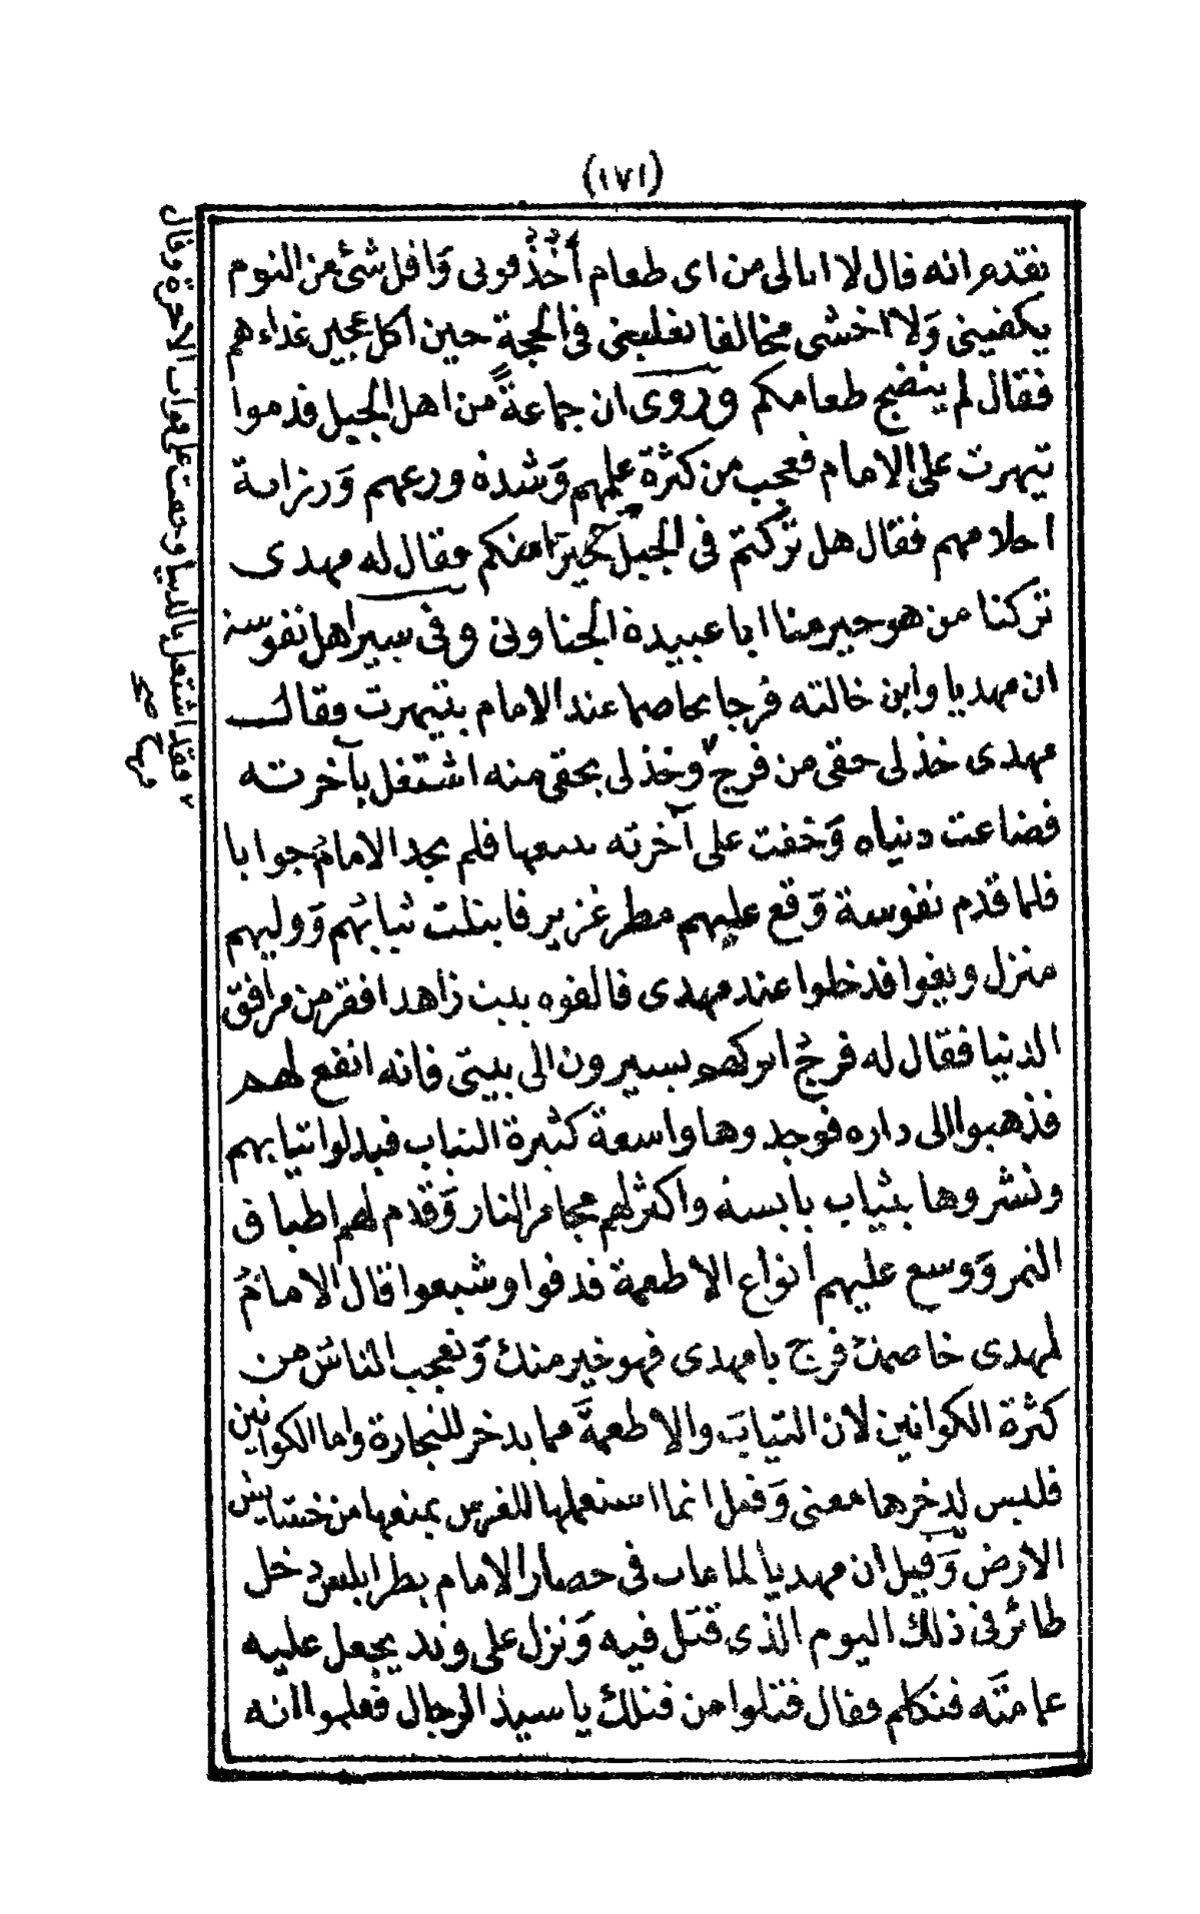 (١٧١)
تقدم انه قال لا ابالى من اى طعام أخذ قوتى وَاقل شئ من النوم
يكفينى وَلا اخشى مخالفا يغلبنى فى الحجة حين اكل عجين غداءهم
فقال لم ينضج طعامكم وروى ان جماعةً من اهل الجبل قدموا
تيهرت على الامام فعجب من كثرة علمهم وَشدة ورعهم وَرزانة
احلامهم فقال هل تركتم فى الجبل خيرا منكم فقال له مهدى
تركنا من هو خير منا ابا عبيدة الجناونى وفى سير اهل نفوسة
ان مهديا وابن خالته فرجا تخاصما عند الامام بتيهرت فقال
مهدى خذ لى حقى من فرج ٢ وخذ لى بحقى منه اشتغل بآخرته
فضاعت دنياه وَخفت على آخرته فلم يجد الامامُ جوابا
فلما قدم نفوسة وَقع عليهم مطر غزير فابتلت ثيابُهم وَوليهم
منزل ويغوا فدخلوا عند مهدى فالفوه ببيت زاهد افقر من مرافق
الدنيا فقال له فرجُ اتركهم يسيرون الى بيتى فانه انفع لهم
فذهبوا الى داره فوجدوها واسعة كثيرة الثياب فبدلوا ثيابهم
ونشروها بثياب يابسة واكثر لهم مجامر النار وَقدم لهم اطباق
التمر وَوسع عليهم انواع الاطعمة فدفوا وشبعوا قال الامامُ
لمهدى خاصمت فرج يا مهدى فهو خير منك وَتعجب الناسُ من
كثرة الكوانين لان الثيابَ والاطعمةَ مما يدخر للتجارة واما الكوانين
فليس لدخرها معنى وَقيل انما استعملها للغرس يمنعها من خشاش
الارض وَقيل ان مهديا لما غاب فى حصار الامام بطرابلس دخل
طائر فى ذلك اليوم الذى قتل فيه وَنزل على وتد يجعل عليه
عمامتَه فتكلم فقال قتلوا من قتلك يا سيد الرجال فعلموا انه
٢ فقد اشتغل بالدنيا وخفت على فوات الآخرة وقال
فرج صح